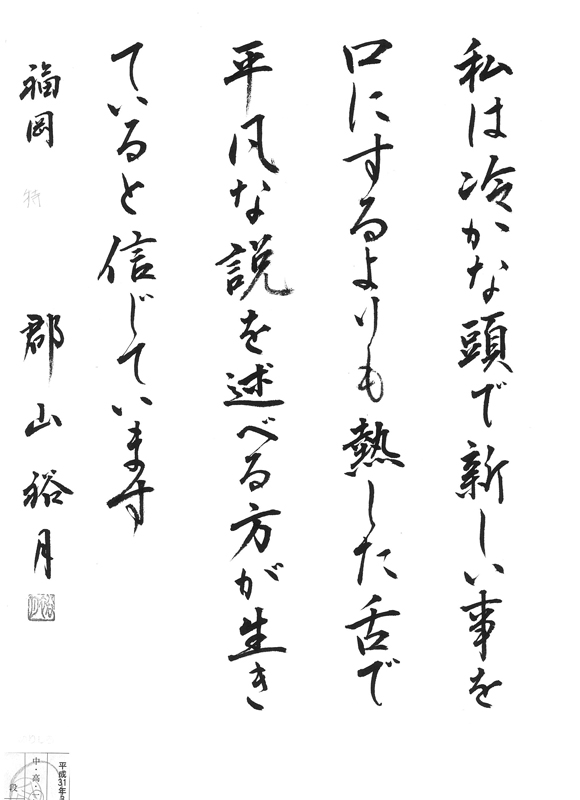 私は冷かな頭で新しい事を
口にするよりも熱した舌で
平凡な説を述べる方が生き
ていると信じています
福岡 特 郡山裕月
平成31年
中・高・
段